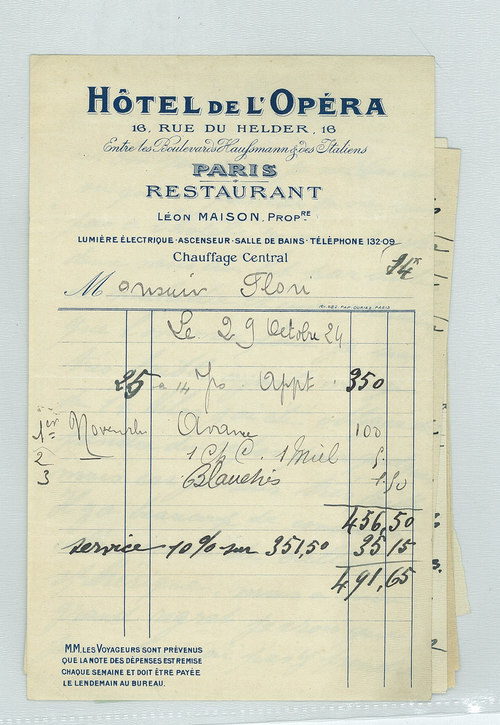 HÔTEL DE L'OPÉRA
16, RUE DU HELDER, 16
Entre les Boulevards Haussmann & des Italiens
PARIS
RESTAURANT
LÉON MAISON, PROPRE
LUMIÈRE ÉLECTRIQUE · ASCENSEUR · SALLE DE BAINS · TÉLÉPHONE 132-09
Chauffage Central
74
Monsieur Flori
Le 29 Octobre 24
25 a 14 Appt. 350
1er Novembre Avance 100
2 1 Ch C. 1 Miel 5.
3 Blanchis 1.50
456,50
service 10% sur 351,50 35 15
491,65
MM. LES VOYAGEURS SONT PRÉVENUS
QUE LA NOTE DES DÉPENSES EST REMISE
CHAQUE SEMAINE ET DOIT ÊTRE PAYÉE
LE LENDEMAIN AU BUREAU.